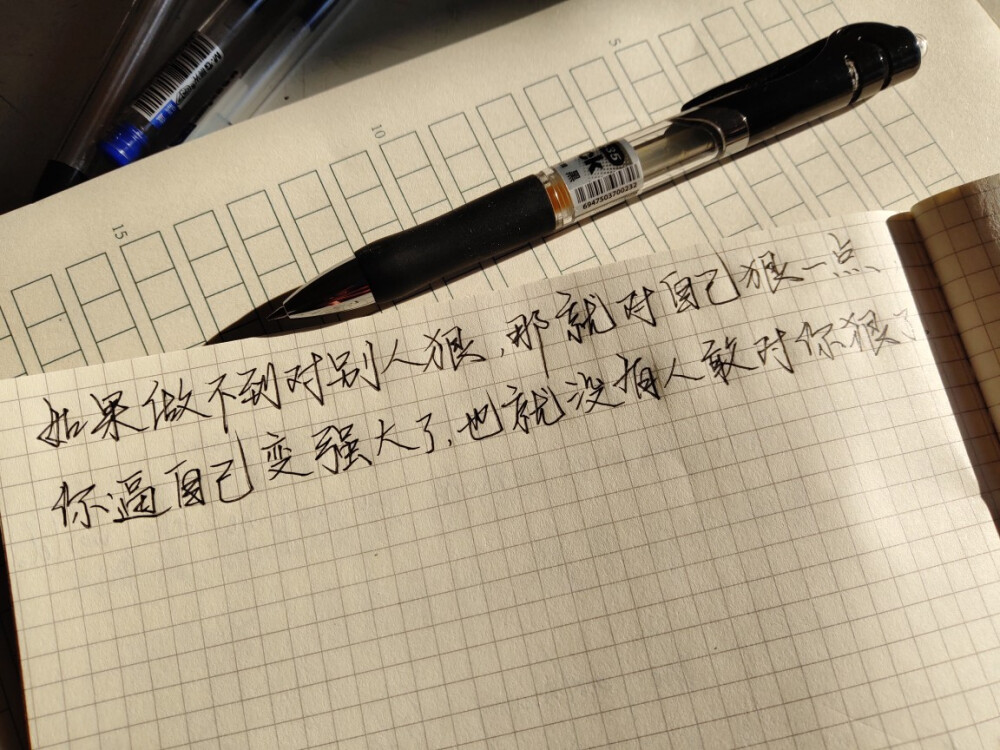 5
10
15
M&G
K35
黑
6947503700232
如果做不到对别人狠,那就对自己狠一点
你逼自己变强大了,也就没有人敢对你狠了